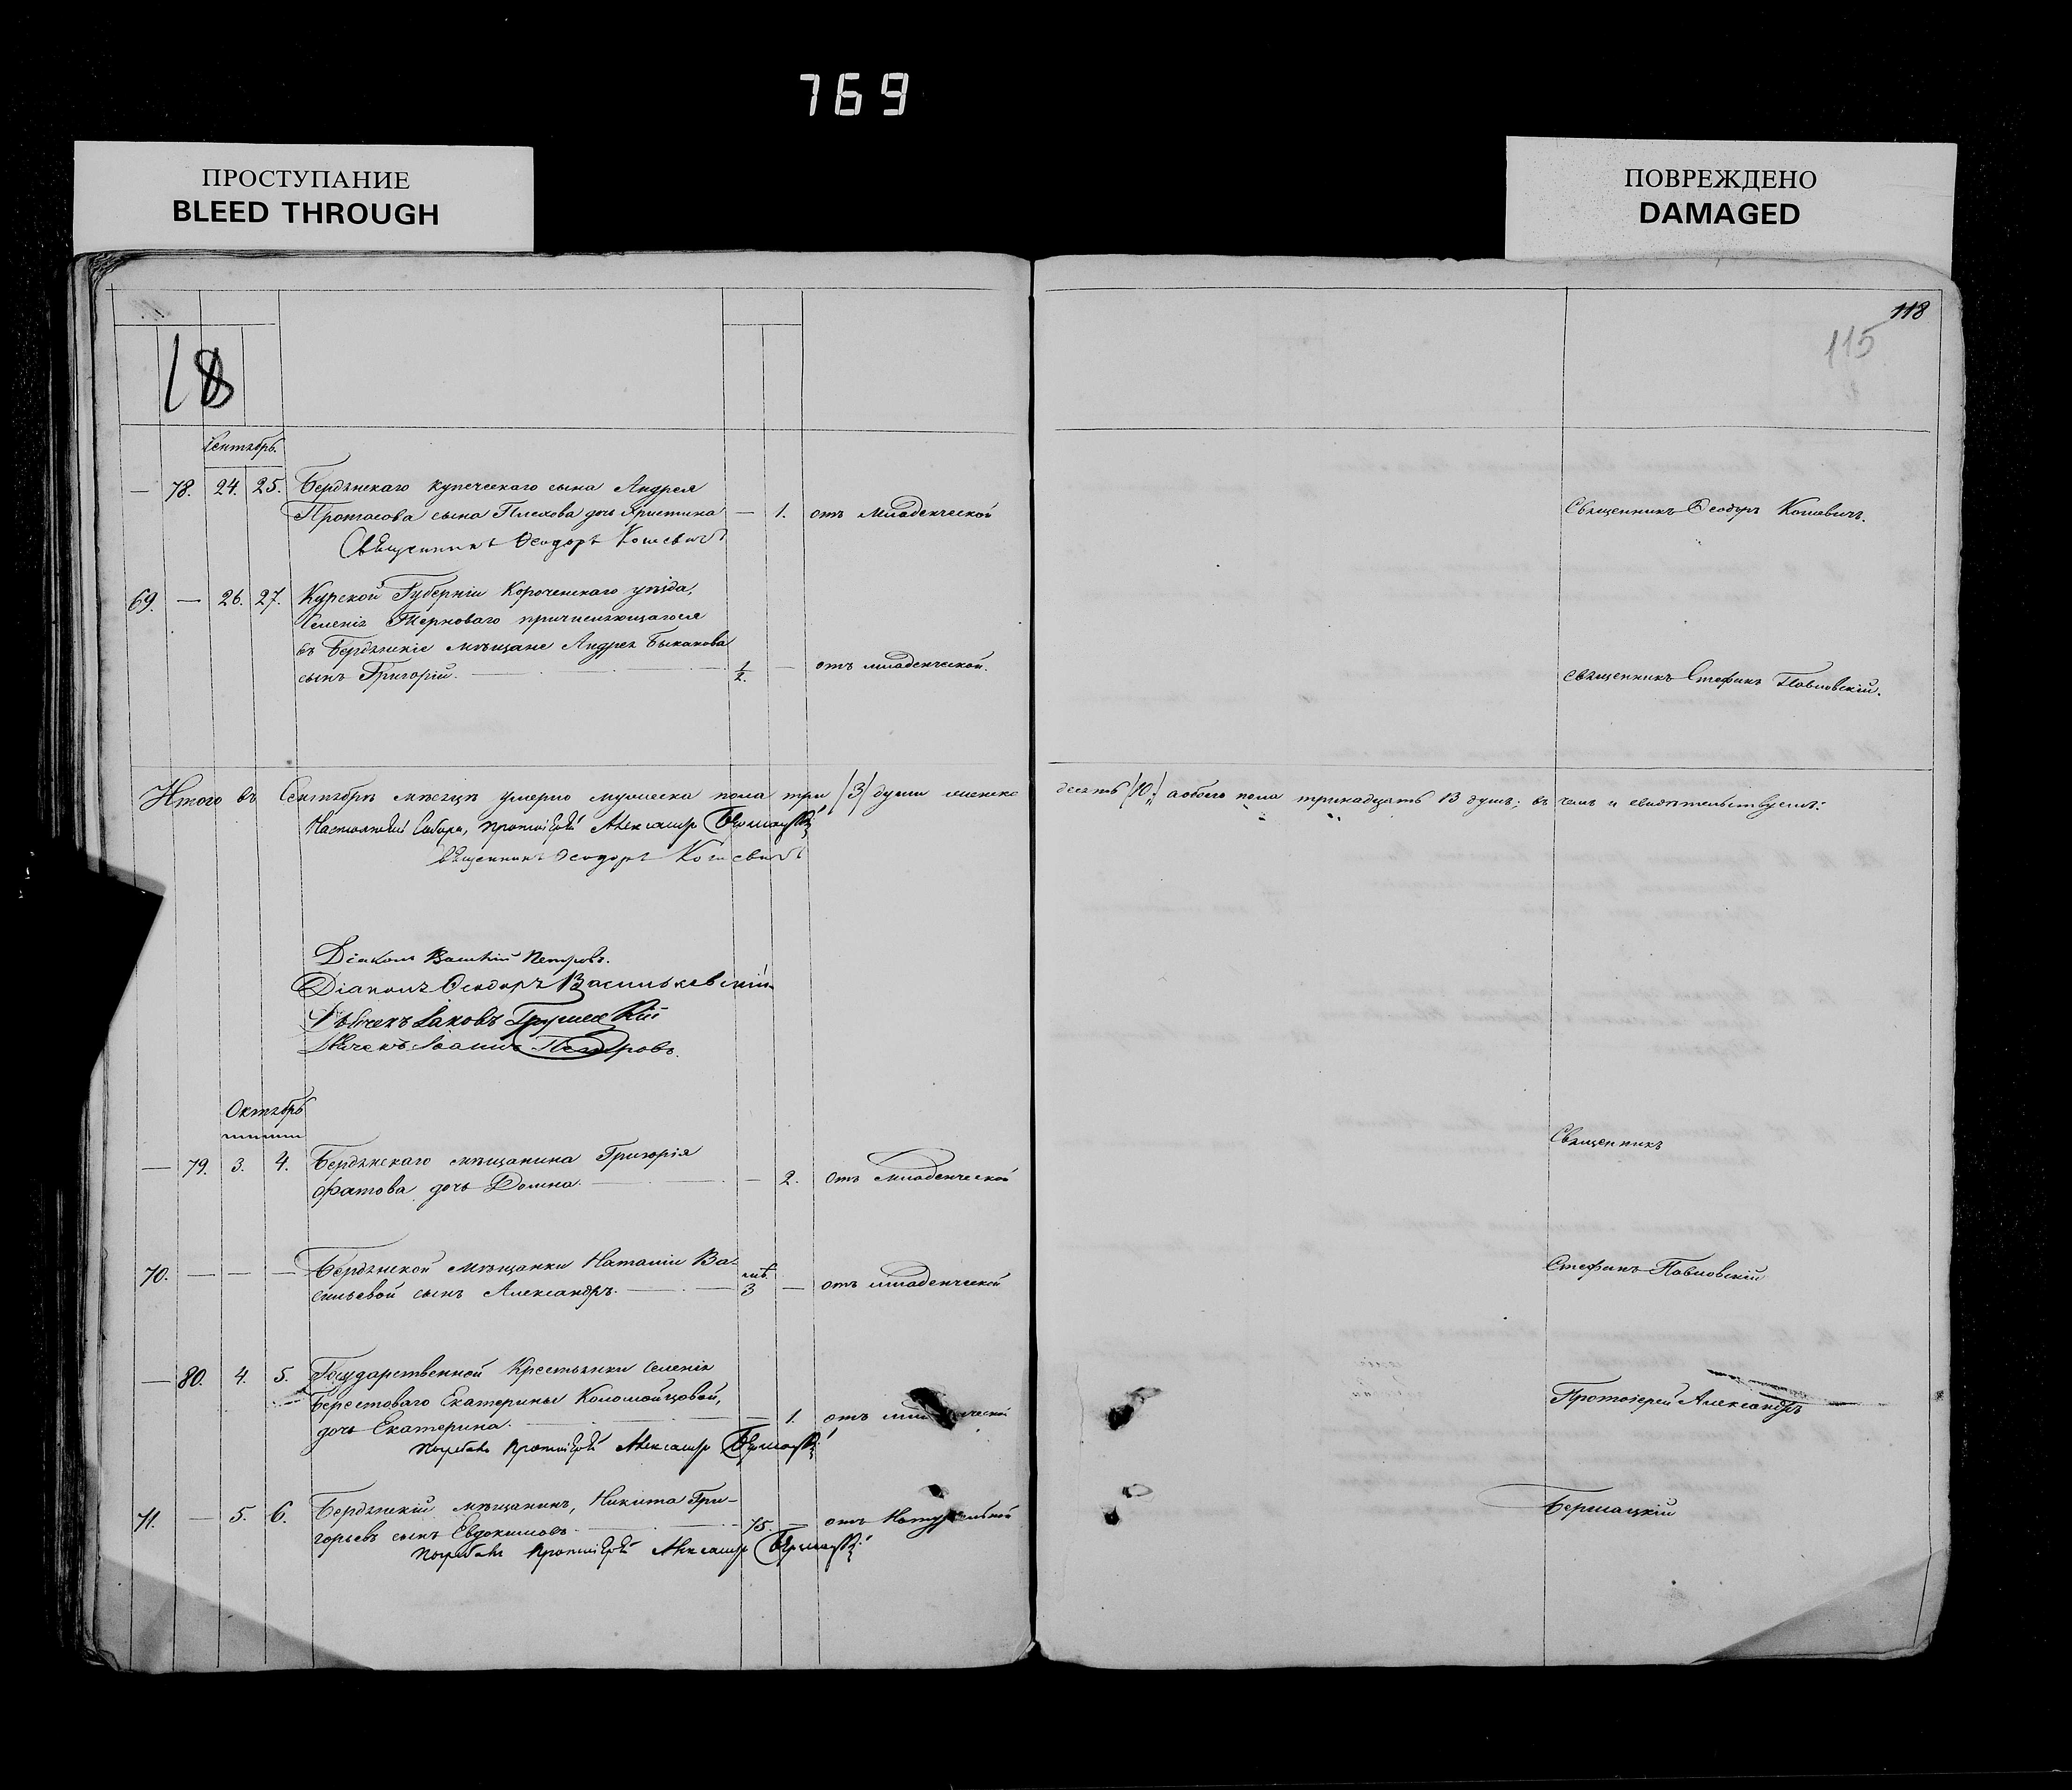 769
ПРОСТУПАНИЕ
BLEED THROUGH
ПОВРЕЖДЕНО
DAMAGED
118
115
18
Сентябрь.
— 78. 24. 25. Бердянскаго купеческаго сына Андрея
Протасова сына Плехова дочь Христина — 1. отъ младенческой Священникъ Ѳеодоръ Кошевичъ.
Священникъ Ѳеодоръ Кошевичъ
69. — 26. 27. Курской Губерніи Короченскаго уѣзда,
Селенія Терноваго причисляющагося
въ Бердянскіе мѣщане Андрея Быканова
сынъ Григорій. 1/2. — отъ младенческой. Священникъ Стефанъ Павловскій.
Итого въ Сентябрѣ мѣсяцѣ умерло мужеска пола три /3/ души женска десять /10,/ а обоего пола тринадцать 13 душъ; въ чемъ и свидѣтельствуемъ:
Настоятель Собора, Протоіерей Александръ
Священникъ Ѳеодоръ Кошевичъ
Діаконъ Василій Петровъ.
Діаконъ Ѳеодоръ Васильковскій
Іаковъ
Іоаннъ Петровъ.
Октябрь
— 79. 3. 4. Бердянскаго мѣщанина Григорія Священникъ
дочь Домна. — 2. отъ младенческой
70. — — — Бердянской мѣщанки Наталіи Ва- Стефанъ Павловскій
сильевой сынъ Александръ. 3 — отъ младенческой
— 80. 4. 5. Государственной Крестьянки Селенія
Берестоваго Екатерины Коломойцовой, Протоіерей Александръ
дочь Екатерина. — 1. отъ
Погребалъ Протоіерей Александръ
71. — 5. 6. Бердянскій мѣщанинъ, Никита Гри- Бершацкій
горьевъ сынъ Евдокимовъ. 75. — отъ Натуральной
Погребалъ Протоіерей Александръ